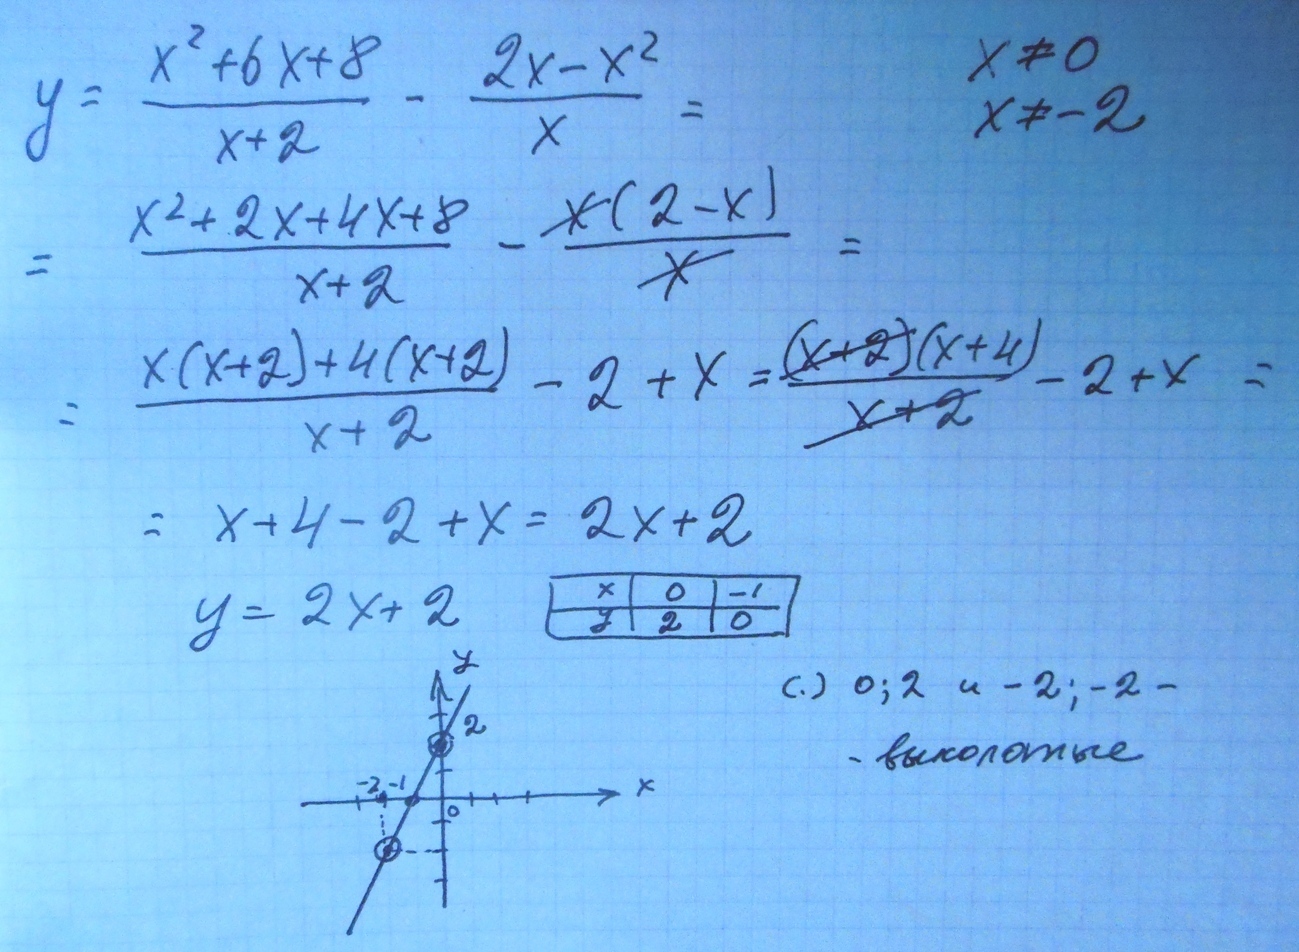 y = (x²+6x+8)/(x+2) - (2x-x²)/x =
x ≠ 0
x ≠ -2
= (x²+2x+4x+8)/(x+2) - x(2-x)/x =
= (x(x+2)+4(x+2))/(x+2) - 2 + x = (x+2)(x+4)/(x+2) - 2 + x =
= x+4-2+x = 2x+2
y = 2x+2
x 0 -1
y 2 0
(.) 0;2 и -2;-2 -
- выколотые
y
2
-2 -1
0
x